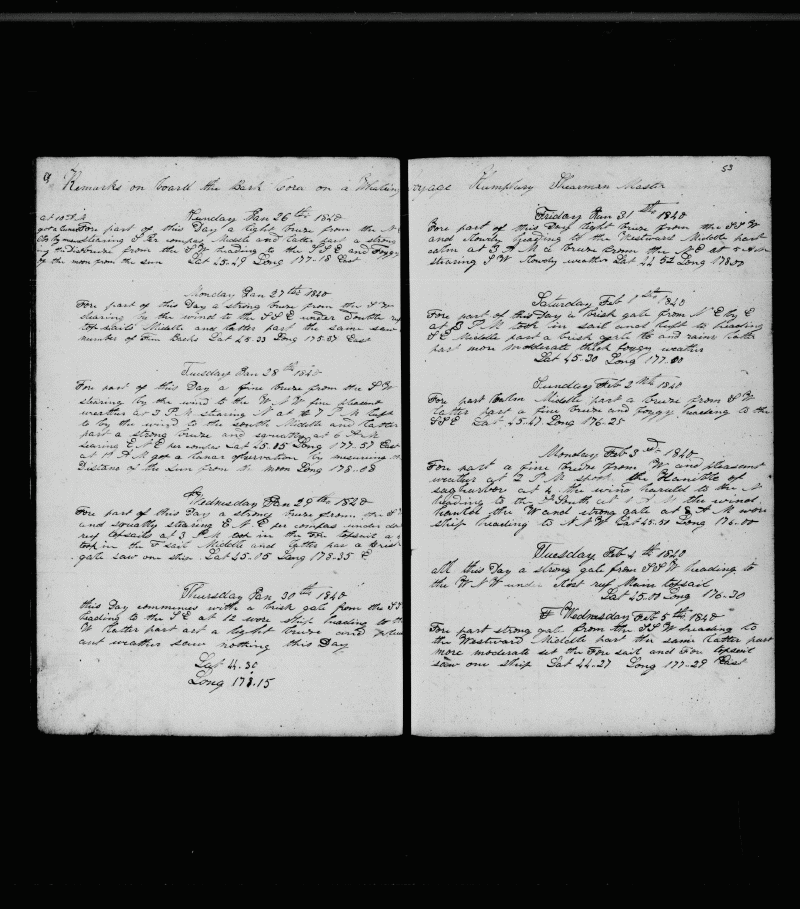 Remarks on board the Bark Cora on a Whaling
Sunday Jan 26th 1840
at 10 A M
got a Lunar Fore part of this Day a light breze from the N
stearing S E per compas Middle and latter part a strong
breze from the S W heading to the S S E and Foggy
of the moon from the sun Lat 45.49 Long 177-18 East
Monday Jan 27th 1840
Fore part of this Day a strong breze from the S W
stearing by the wind to the S S E under Double ref
top sails Middle and latter part the same saw
number of Fin Backs Lat 45.33 Long 175.57 East
Tuesday Jan 28th 1840
Fore part of this Day a fine breze from the S W
stearing by the wind to the W N W fine pleasent
weather at 3 P M stearing N at 7 P M luft
to by the wind to the south Middle and latter
part a strong breze and squally at 6 A M
stearing E N E per compas Lat 45.05 Long 177.57 East
at 10 A M got a lunar observation by mesuring the
Distance of the sun from the moon Long 178.08
Wednesday Jan 29th 1840
Fore part of this Day a strong breze from the S
and squally stearing E N E per compas under
ref topsails at 3 P M took in the Fore topsail
took in the F sail Middle and latter has a brisk
gale saw one ship Lat 45.15 Long 178.35 E
Thursday Jan 30th 1840
this Day commences with a brisk gale from the
heading to the S E at 12 wore ship heading to the
W latter part a light breze and pleas
ant weather saw nothing this Day
Lat 4.30
Long 178.15
53
voyage Humphrey Shearman Master
Friday Jan 31th 1840
Fore part of this Day light breze from the S S W
and Rowdy heading to the Westward Middle part
calm at 3 A M a breze from the N E at 5 A M
stearing S W Rowdy weather Lat 44 52 Long 178.00
Saturday Feb 1th 1840
Fore part of this Day a brisk gale from N E by E
at 3 P M took in sail and luft to heading
S E Middle part a brisk gale and rainy latter
part more moderate thick foggy weather
Lat 45.30 Long 177.00
Sunday Feb 2th 1840
Fore part Calm Middle part a breze from S W
latter part a fine breze and foggy heading to the
S S E Lat 45.47 Long 176-25
Monday Feb 3th 1840
Fore part a fine breze from W and pleasent
weather at 2 P M spoke the Hamilton of
sagharbor at 4 the wind hauled to the N
heading to the South at the wind
hauled the W and strong gale at 8 A M wore
ship heading to N N W Lat 45.50 Long 176.00
Tuesday Feb 4th 1840
all this Day a strong gale from S S W heading to
the W N W under close ref Main topsail
Lat 45.00 Long 176-30
Wednesday Feb 5th 1840
Fore part strong gale from the S S W heading to
the Westward Middle part the same latter part
more moderate set the Fore sail and Fore topsail
saw one ship Lat 44-27 Long 177-29 East